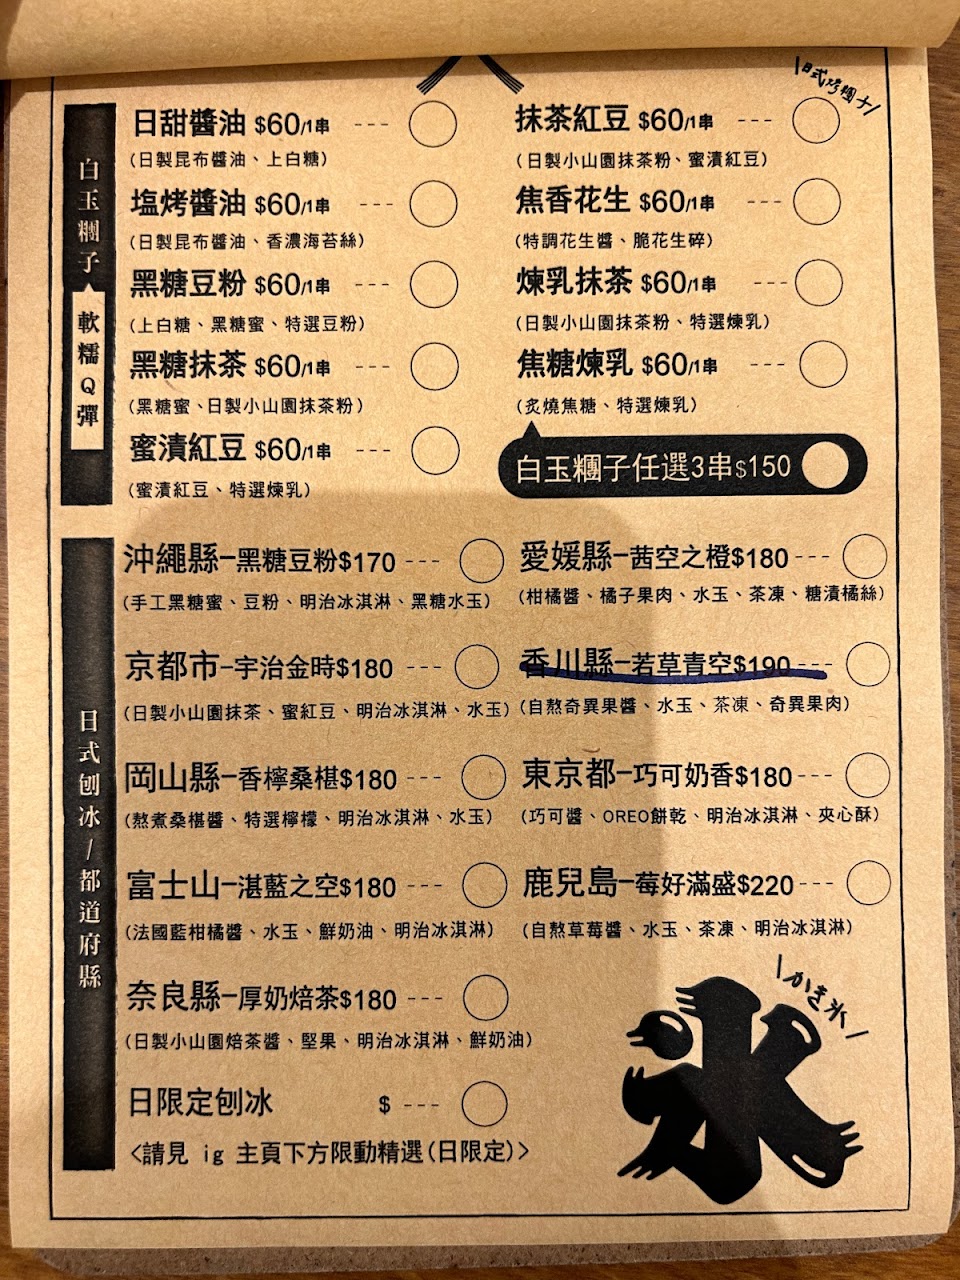 白玉糰子
軟糯Q彈
\日式烤糰子/
日甜醬油 $60/1串 ---
(日製昆布醬油、上白糖)
塩烤醬油 $60/1串 ---
(日製昆布醬油、香濃海苔絲)
黑糖豆粉 $60/1串 ---
(上白糖、黑糖蜜、特選豆粉)
黑糖抹茶 $60/1串 ---
(黑糖蜜、日製小山園抹茶粉)
蜜漬紅豆 $60/1串 ---
(蜜漬紅豆、特選煉乳)
抹茶紅豆 $60/1串 ---
(日製小山園抹茶粉、蜜漬紅豆)
焦香花生 $60/1串 ---
(特調花生醬、脆花生碎)
煉乳抹茶 $60/1串 ---
(日製小山園抹茶粉、特選煉乳)
焦糖煉乳 $60/1串 ---
(炙燒焦糖、特選煉乳)
白玉糰子任選3串$150
日式刨冰/都道府縣
沖繩縣–黑糖豆粉$170 ---
(手工黑糖蜜、豆粉、明治冰淇淋、黑糖水玉)
京都市–宇治金時$180 ---
(日製小山園抹茶、蜜紅豆、明治冰淇淋、水玉)
岡山縣–香檸桑椹$180 ---
(熬煮桑椹醬、特選檸檬、明治冰淇淋、水玉)
富士山–湛藍之空$180 ---
(法國藍柑橘醬、水玉、鮮奶油、明治冰淇淋)
奈良縣–厚奶焙茶$180 ---
(日製小山園焙茶醬、堅果、明治冰淇淋、鮮奶油)
日限定刨冰 $ ---
<請見 ig 主頁下方限動精選(日限定)>
愛媛縣–茜空之橙$180 ---
(柑橘醬、橘子果肉、水玉、茶凍、糖漬橘絲)
香川縣–若草青空$190 ---
(自熬奇異果醬、水玉、茶凍、奇異果肉)
東京都–巧可奶香$180 ---
(巧可醬、OREO餅乾、明治冰淇淋、夾心酥)
鹿兒島–莓好滿盛$220 ---
(自熬草莓醬、水玉、茶凍、明治冰淇淋)
\かき氷/
氷